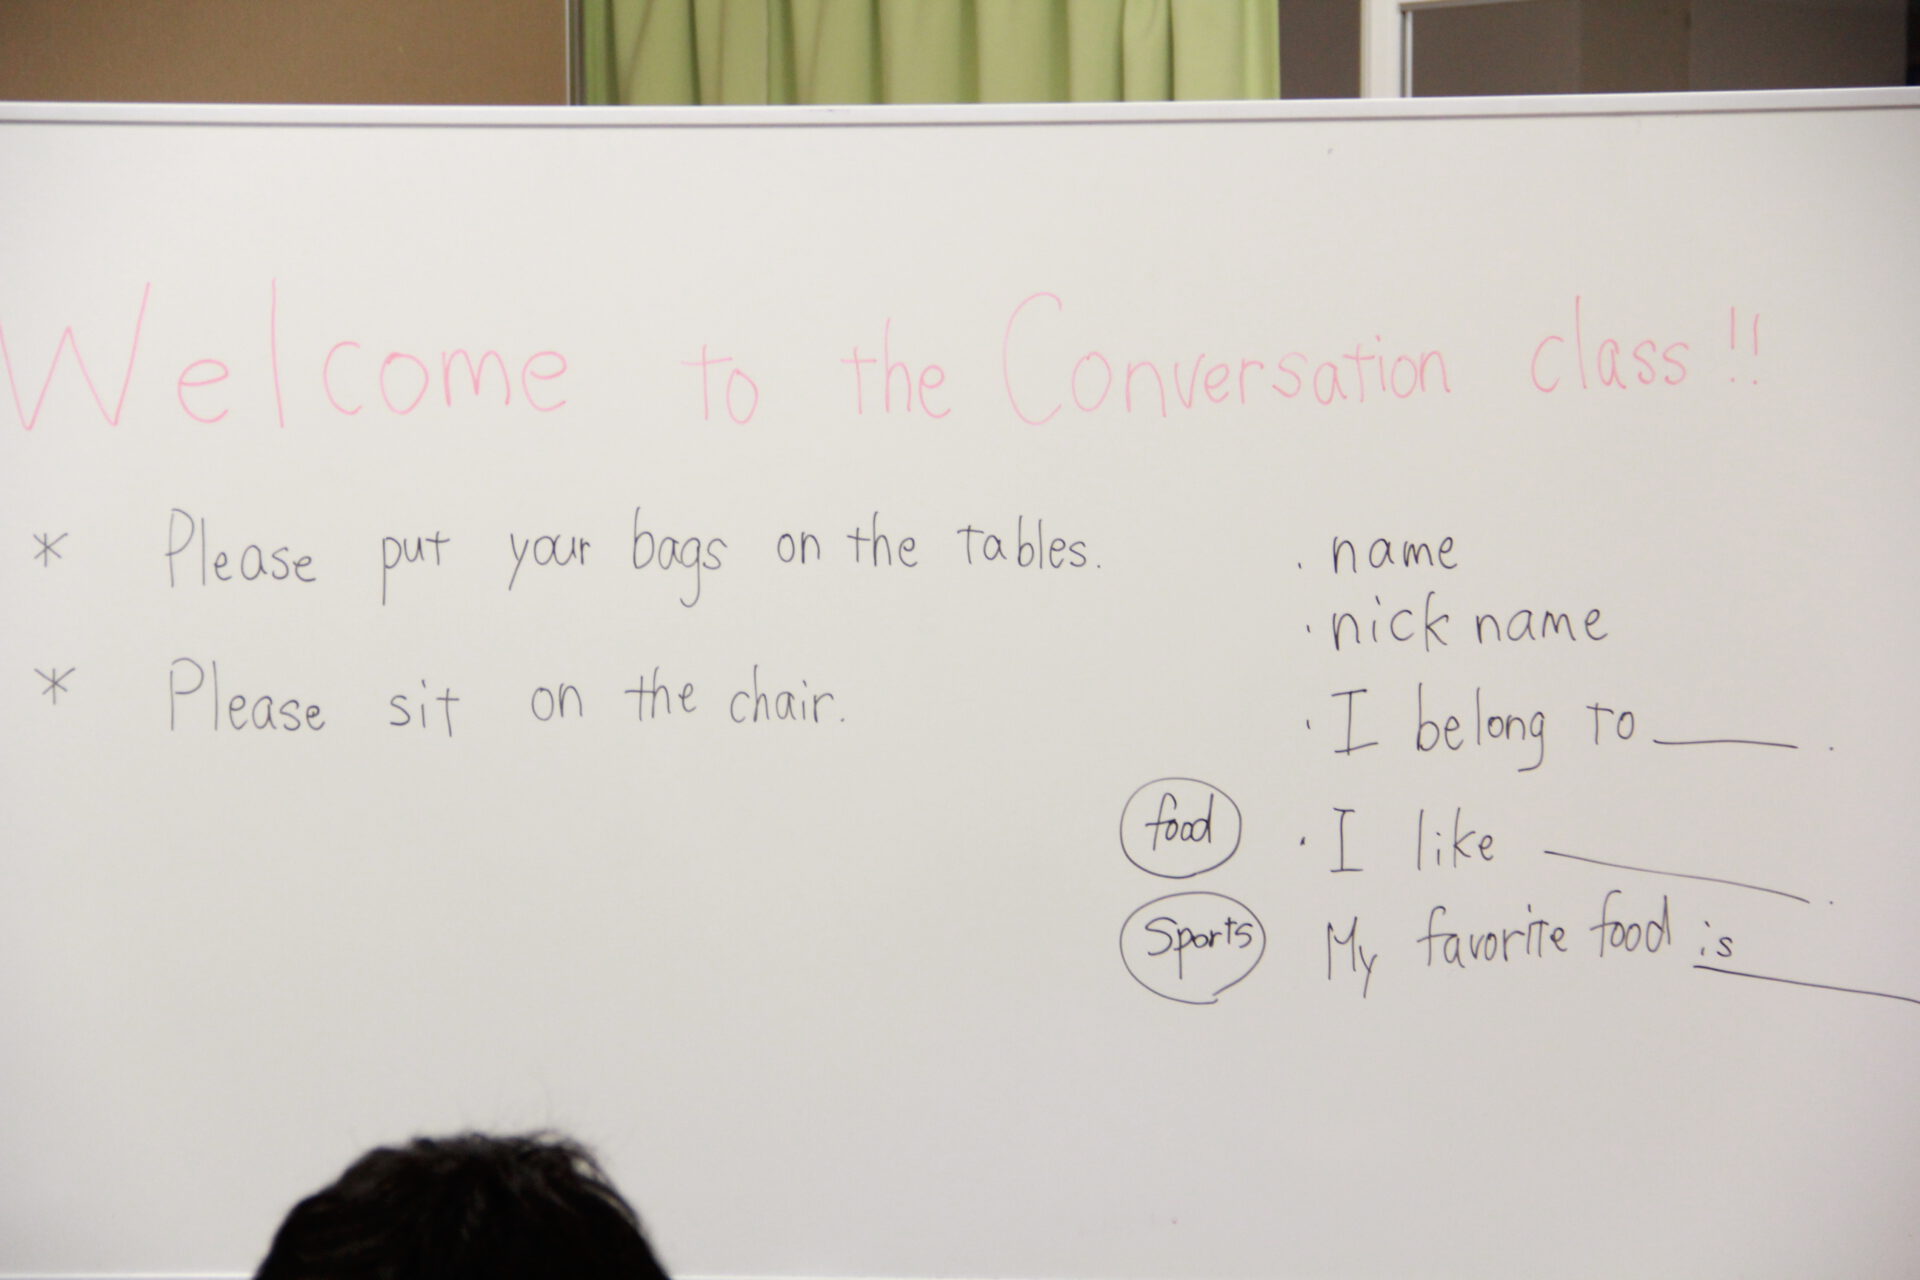 Welcome to the Conversation class!!
* Please put your bags on the tables.
* Please sit on the chair.
· name
· nick name
· I belong to ____.
food · I like ____.
Sports My favorite food is ____